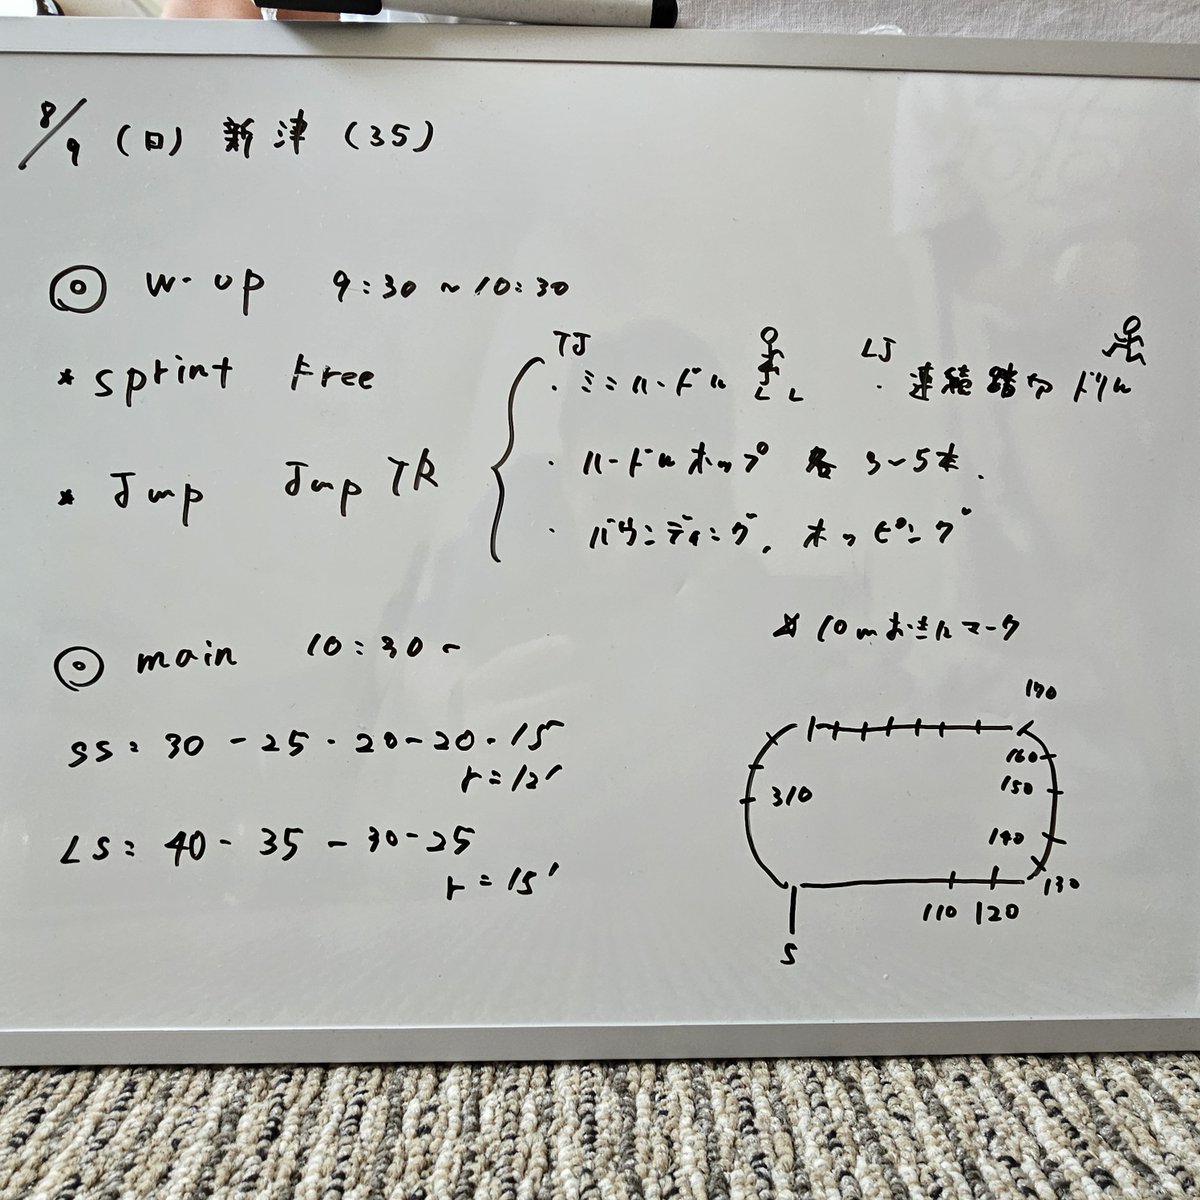 8/9 (日) 新津 (35)
◎ w-up 9:30 ~ 10:30
* sprint Free
* Jmp Jmp TR
TJ
・ミニハードル
LJ
・連続踏切ドリル
・ハードルホップ 各 3~5本.
・バウンディング, ホッピング
◎ main 10:30 ~
SS: 30 - 25 - 20 - 20 - 15
r = 12'
LS: 40 - 35 - 30 - 25
r = 15'
※ 10mおきにマーク
170
160
150
140
130
310
110 120
S